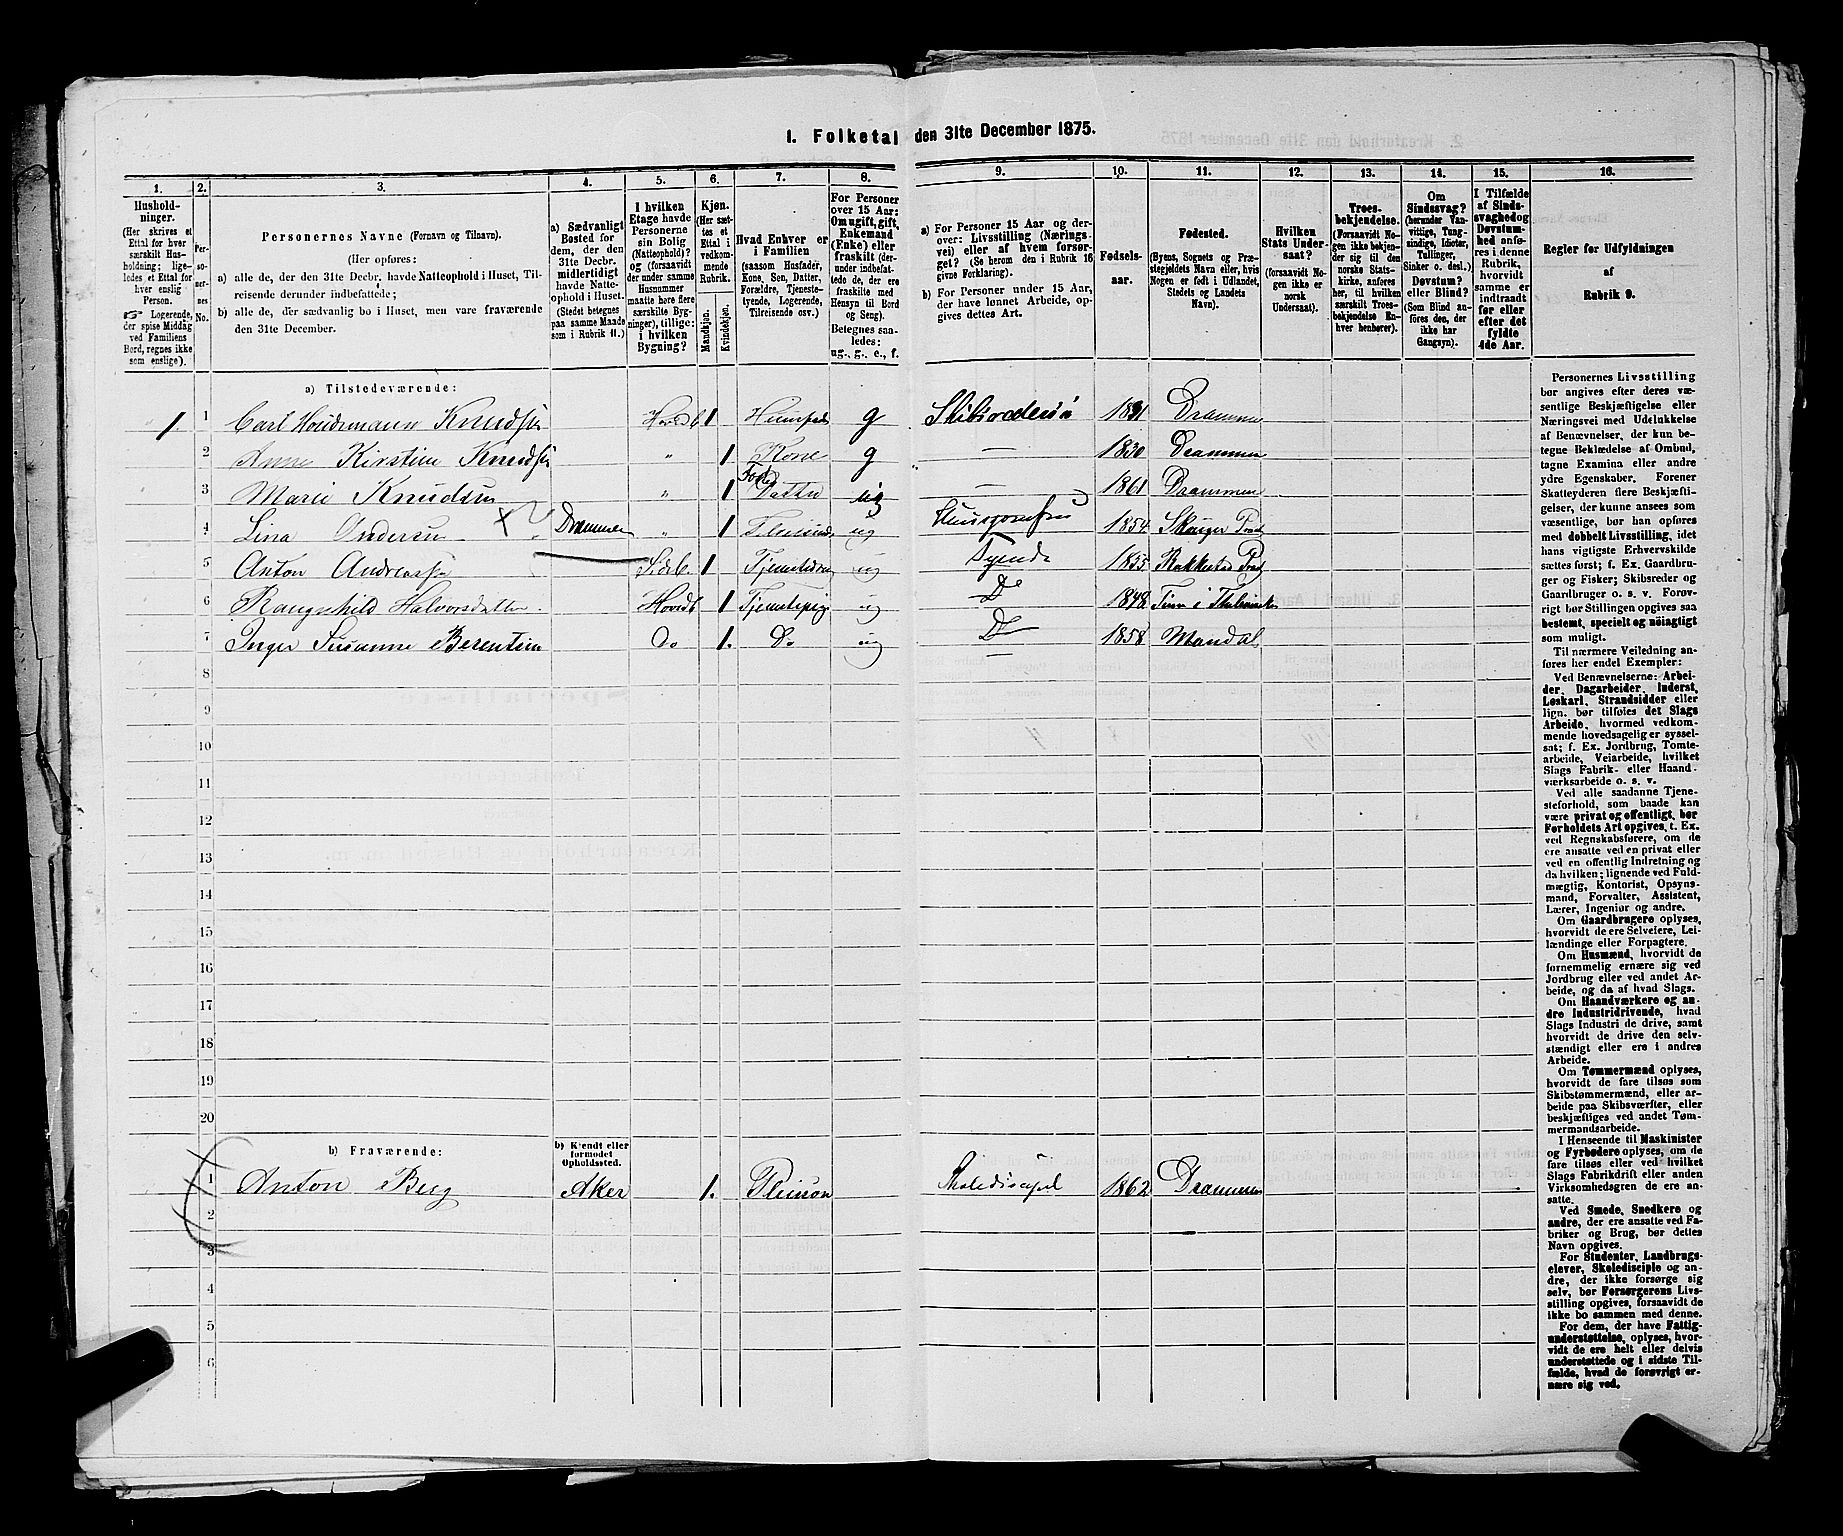 1. Folketal den 31te December 1875.
1. 2. 3. 4. 5. 6. 7. 8. 9. 10. 11. 12. 13. 14. 15. 16.
Hushold-
ninger.
(Her skrives et
Ettal for hver
særskilt Hus-
holdning; lige-
ledes et Ettal for
hver enslig
Person.
☞ Logerende,
der spise Middag
ved Familiens
Bord, regnes ikke
som enslige).
Per-
so-
ner-
nes
No.
Personernes Navne (Fornavn og Tilnavn).
(Her opføres:
a) alle de, der den 31te Decbr. havde Natteophold i Huset, Til-
reisende derunder indbefattede;
b) alle de, der sædvanlig bo i Huset, men vare fraværende
den 31te December.
a) Sædvanligt
Bosted for
dem, der den
31te Decbr.
midlertidigt
havde Natte-
ophold i Huset.
(Stedet betegnes
paa samme Maade
som i Rubrik 11.)
I hvilken
Etage havde
Personerne
sin Bolig
(Natteophold)?
og (forsaavidt
der under samme
Husnummer
maatte høre flere
særskilte Byg-
ninger), tillige:
i hvilken
Bygning?
Kjøn.
(Her sæt-
tes et
Ettal i
vedkom-
mende
Rubrik.
Mandkjøn.
Kvindekjøn.
Hvad Enhver er
i Familien
(saasom Husfader,
Kone, Søn, Datter,
Forældre, Tjeneste-
tyende, Logerende,
Tilreisende osv.)
For Personer
over 15 Aar:
Om ugift, gift,
Enkemand
(Enke) eller
fraskilt (der-
under indbefat-
tede de, der ere
fraskilte med
Hensyn til Bord
og Seng).
Betegnes saa-
ledes:
ug., g., e., f.
a) For Personer 15 Aar og der-
over: Livsstilling (Nærings-
vei) eller af hvem forsør-
get? (Se herom den i Rubrik 16
givne Forklaring).
b) For Personer under 15 Aar,
der have lønnet Arbeide, op-
gives dettes Art.
Fødsels-
aar.
Fødested.
(Byens, Sognets og Præ-
stegjeldets Navn eller, hvis
Nogen er født i Udlandet,
Stedets og Landets
Navn).
Hvilken
Stats Under-
saat?
(forsaavidt No-
gen ikke er
norsk
Undersaat).
Troes-
bekjendelse.
(Forsaavidt No-
gen ikke bekjen-
der sig til den
norske Stats-
kirke, anføres
her, til hvilken
særskilt Troes-
bekjendelse En-
hver henhører).
Om
Sindssvag?
(herunder Van-
vittige, Tung-
sindige, Idioter,
Sinker o. desl.)
Døvstum?
eller Blind?
(Som Blind an-
føres den, der
ikke har
Gangsyn).
I Tilfælde
af Sinds-
svaghed og
Døvstum-
hed anfø-
res i denne
Rubrik,
hvorvidt
samme er
indtraadt
før eller
efter det
fyldte
4de Aar.
Regler for Udfyldningen
af
Rubrik 9.
a) Tilstedeværende:
1. 1 Carl Knudsen Hovedb 1 g 1831 Drammen
2 Anne Kirstine Knudsen " 1 Kone g — 1830 Drammen
3 Marie Knudsen " 1 Datter ug — 1861 Drammen
4 Lina Andersen Drammen " 1 ug 1854 Skouger
5 Anton Andreassen Sideb. 1 ug Tyende 1855
6 Rangnhild Halvorsdatter Hovedb 1 Tjenestepige ug Do 1848 Tinn i Thelemarken
7 Inger Susanne Berentsen Do 1. Do ug Do 1858 Mandal
8
9
10
11
12
13
14
15
16
17
18
19
20
b) Fraværende:
b) Kjendt eller
formodet
Opholdssted.
1 Anton Berg Aker 1. Pleiesøn Skoledisipel 1862 Drammen
2
3
4
5
6
Personernes Livsstilling
bør angives efter deres væ-
sentlige Beskjæftigelse eller
Næringsvei med Udelukkelse
af Benævnelser, der kun be-
tegne Beklædelse af Ombud,
tagne Examina eller andre
ydre Egenskaber. Forener
Skatteyderen flere Beskjæfti-
gelser, der kunne ansees som
væsentlige, bør han opføres
med dobbelt Livsstilling, idet
hans vigtigste Erhvervskilde
sættes først; f. Ex. Gaardbru-
ger og Fisker; Skibsreder og
Gaardbruger o. s. v. Forøv-
rigt bør Stillingen opgives saa
bestemt, specielt og nøiagtigt
som muligt.
Til nærmere Veiledning an-
føres her endel Exempler:
Ved Benævnelserne: Arbei-
der, Dagarbeider, Inderst,
Løskarl, Strandsidder eller
lign. bør tilføies det Slags
Arbeide, hvormed vedkom-
mende hovedsagelig er syssel-
sat; f. Ex. Jordbrug, Tomte-
arbeide, Veiarbeide, hvilket
Slags Fabrik- eller Haand-
værksarbeide o. s. v.
Ved alle saadanne Tjene-
steforhold, som baade kan
være privat og offentligt, bør
Forholdets Art opgives, t. Ex.
ved Regnskabsførere, om de
ere ansatte ved en privat eller
ved en offentlig Indretning og
da hvilken; lignende ved Fuld-
mægtig, Kontorist, Opsyns-
mand, Forvalter, Assistent,
Lærer, Ingeniør og andre.
Om Gaardbrugere oplyses,
hvorvidt de ere Selveiere, Lei-
lændinge eller Forpagtere.
Om Husmænd, hvorvidt de
fornemmelig ernære sig ved
Jordbrug eller ved andet Ar-
beide, og da af hvad Slags.
Om Haandværkere og an-
dre Industridrivende, hvad
Slags Industri de drive, samt
hvorvidt de drive den selv-
stændigt eller ere i andres
Arbeide.
Om Tømmermænd oplyses,
hvorvidt de fare tilsøs som
Skibstømmermænd, eller ar-
beide paa Skibsværfter, eller
beskjæftiges ved andet Tøm-
mermandsarbeide.
I Henseende til Maskinister
og Fyrbødere oplyses, om de
fare tilsøs eller ved hvilket
Slags Fabrikdrift eller anden
Virksomhedsgren de ere an-
satte.
Ved Smede, Snedkere og
andre, der ere ansatte ved Fa-
briker og Brug, bør dettes
Navn opgives.
For Studenter, Landbrugs-
elever, Skoledisciple og an-
dre, der ikke forsørge sig
selv, bør Forsørgerens Livs-
stilling opgives, forsaavidt de
ikke bo sammen med denne.
For dem, der have Fattig-
understøttelse, oplyses, hvor-
vidt de ere helt eller delvis
understøttede og i sidste Til-
fælde, hvad de forøvrigt er-
nære sig ved.